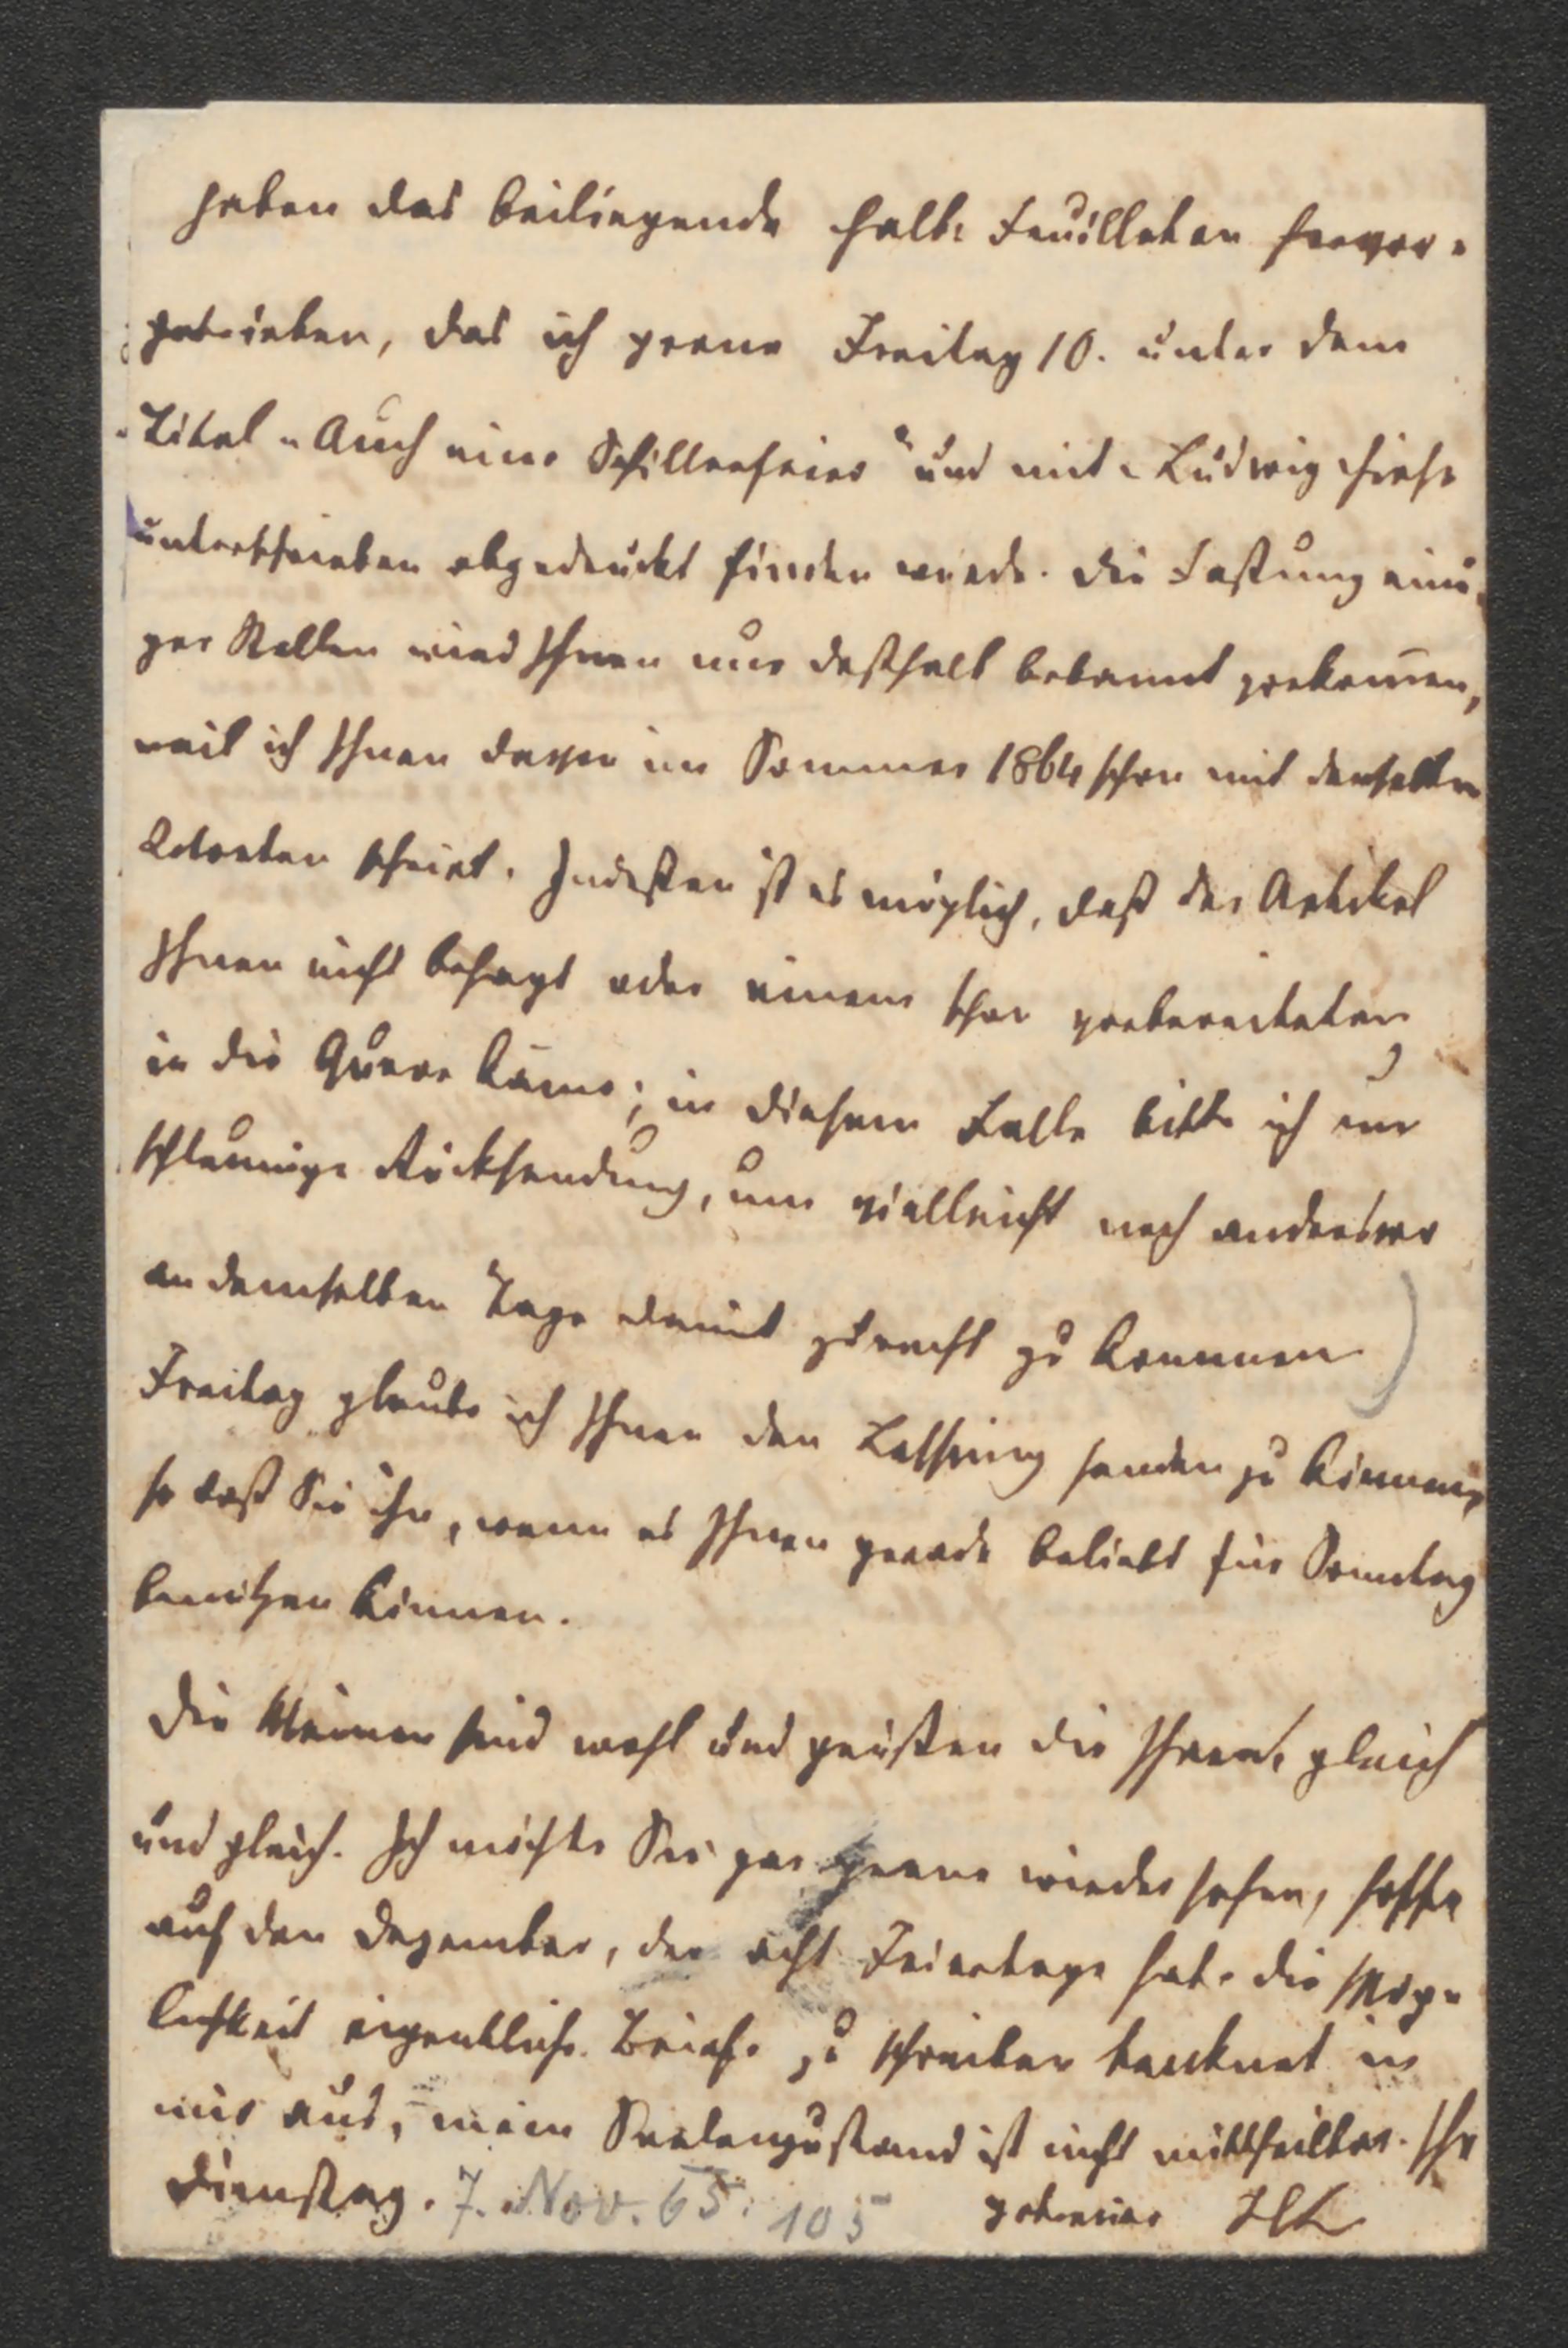 haben das beiliegende halbe Feuilleton hervor-
getrieben, das ich gerne Freitag 10. unter dem
Titel „Auch eine Schillerfeier" und mit „Ludwig
unterschrieben abgedruckt finden würde. Die Faßung eini-
ger Stellen wird Ihnen nur deßhalb bekannt vorkom̄en,
weil ich Ihnen davon im Sommer 1864 schon mit denselben
Worten schrieb. Indeßen ist es möglich, daß der Artikel
Ihnen nicht behagt oder einem schon vorbereiteten
in die Quere käme; in diesem Falle bitte ich um
schleunige Rücksendung, um vielleicht noch anderswo
an demselben Tage damit zurecht zu kommen
Freitag glaube ich Ihnen den Lessing senden zu können,
so daß Sie ihn, wenn es Ihnen gerade beliebt für Sonntag
benützen können.
Die Meinen sind wohl und grüßen die Ihren, gleich
und gleich. Ich möchte Sie gar gerne wieder sehen, hoffe
auf den Dezember, der acht Feiertage hat. die Mög-
lichkeit eigentliche Briefe zu schreiben trocknet in
mir aus, mein Seelenzustand ist nicht mittheilbar. Ihr
Dienstag. 7. Nov. 65. 105 getreuer